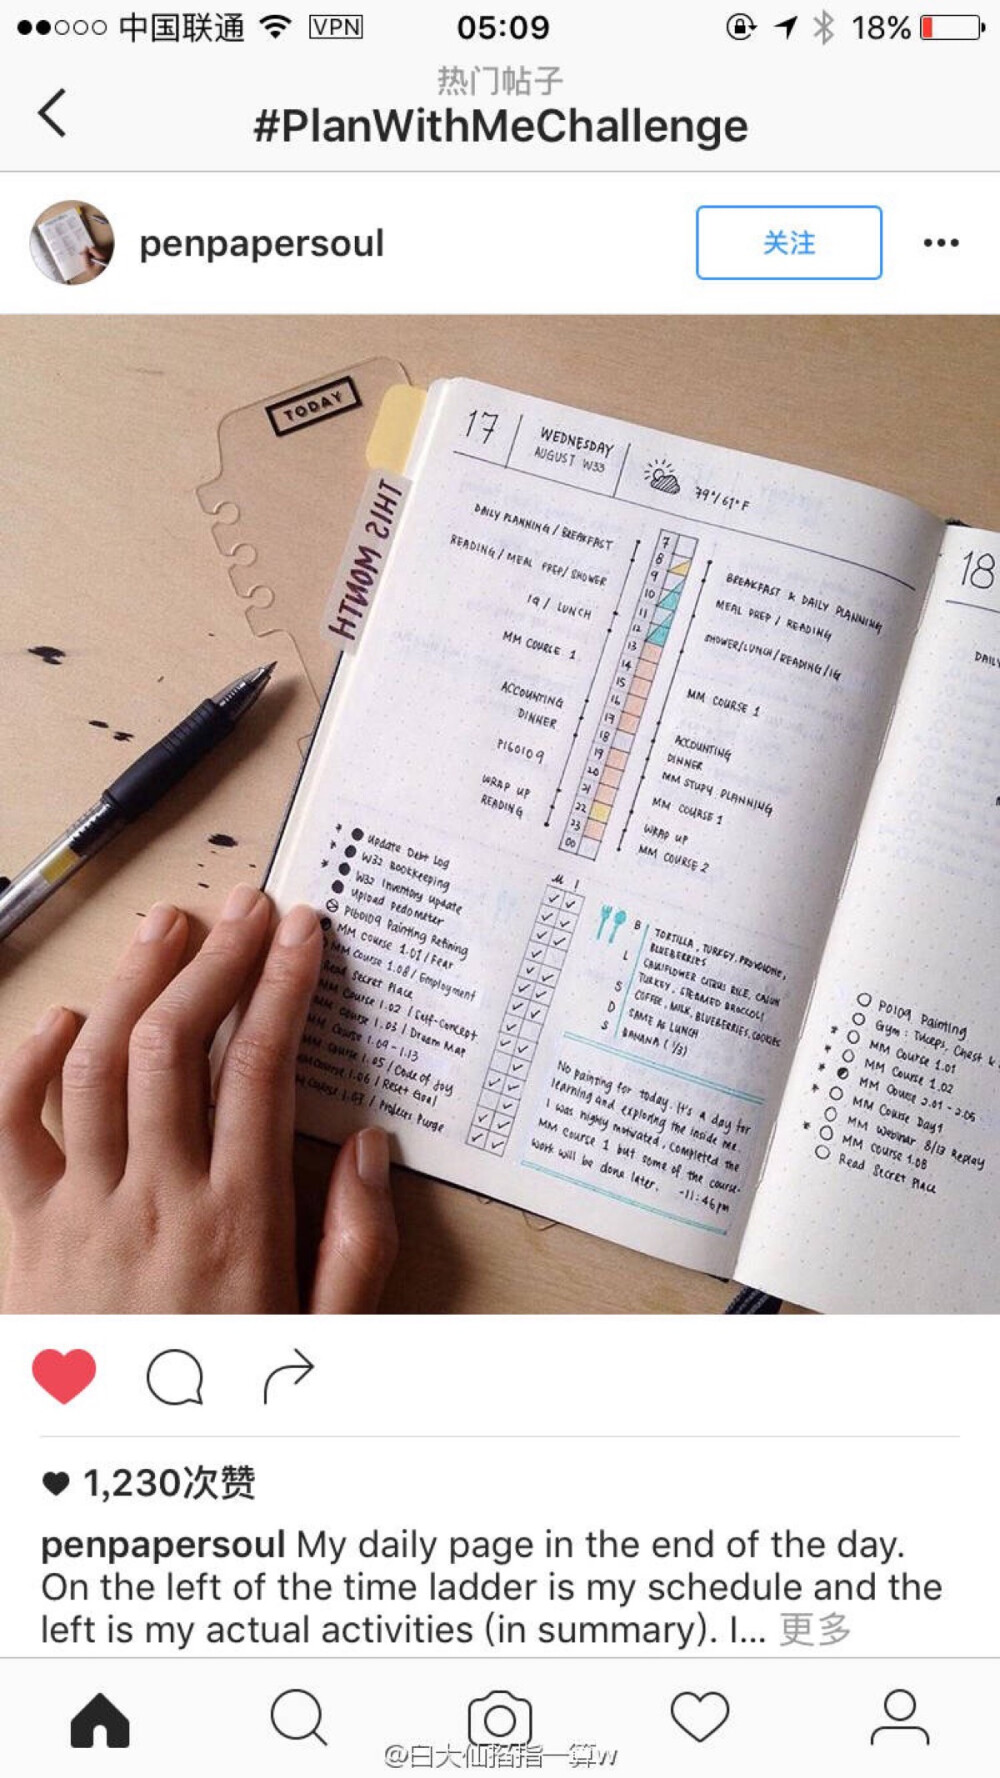 中国联通 VPN 05:09 18%
热门帖子
#PlanWithMeChallenge
penpapersoul
关注
TODAY
THIS MONTH
17
WEDNESDAY
AUGUST W33
79°/61°F
DAILY PLANNING / BREAKFAST
READING / MEAL PREP / SHOWER
IG / LUNCH
MM COURSE 1
ACCOUNTING
DINNER
P160109
WRAP UP
READING
7
8
9
10
11
12
13
14
15
16
17
18
19
20
21
22
23
00
BREAKFAST & DAILY PLANNING
MEAL PREP / READING
SHOWER/LUNCH/READING/IG
MM COURSE 1
ACCOUNTING
DINNER
MM STUDY PLANNING
MM COURSE 1
WRAP UP
MM COURSE 2
Update Debt Log
W32 Bookkeeping
W32 Inventory Update
Upload Pedometer
P160109 Painting Refining
MM Course 1.01 / Fear
MM Course 1.08 / Employment
Read Secret Place
MM Course 1.02 / Self-Concept
MM Course 1.03 / Dream Map
MM Course 1.09-1.13
MM Course 1.05 / Code of Joy
MM Course 1.06 / Reset Goal
M Course 1.07 / Projects Purge
M I
B TORTILLA, TURKEY, PROVOLONE,
BLUEBERRIES
L CAULIFLOWER CITRUS RICE, CAJUN
TURKEY, STEAMED BROCCOLI
S COFFEE, MILK, BLUEBERRIES, COOKIES
D SAME AS LUNCH
S BANANA (1/3)
No painting for today. It's a day for
learning and exploring the inside me.
I was highly motivated, completed the
MM Course 1 but some of the course-
work will be done later. -11:46pm
18
DAILY
P0109 Painting
Gym: Triceps, Chest &
MM Course 1.01
MM Course 1.02
MM Course 2.01-2.05
MM Course Day1
MM Webinar 8/13 Replay
MM Course 1.08
Read Secret Place
1,230次赞
penpapersoul My daily page in the end of the day.
On the left of the time ladder is my schedule and the
left is my actual activities (in summary). I... 更多
@白大仙掐指一算w